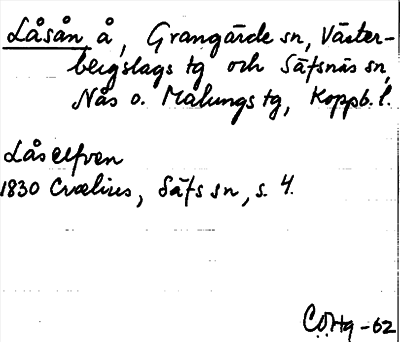 Låsån å, Grangärde sn, Väster-
bergslags tg och Säfsnäs sn,
Nås o. Malungs tg, Koppb. l.
Låselfven
1830 Crælius, Säfs sn, s. 4.
COHg -62